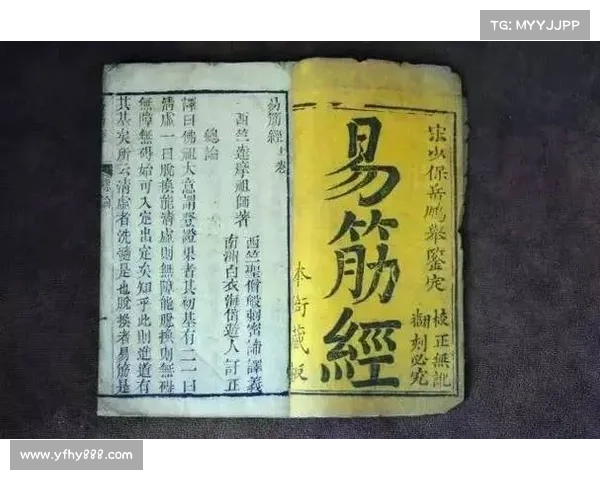 TG: MYYJJPP
宋少保岳鵬舉鑒定
校正無訛
翻刻必究
易筋經
本衙藏板
易筋經上卷
西竺達摩祖師著
西竺聖僧般剌密諦譯義
南洲白衣海岱遊人訂正
總論
譯曰佛祖大意謂登證果者其初基有二一曰
清虛一曰脫換能清虛則無障能脫換則無礙
無障無礙始可入定出定矣知乎此則進道有
其基矣所云清虛者洗髓是也脫換者易筋是
www.yfhy888.com